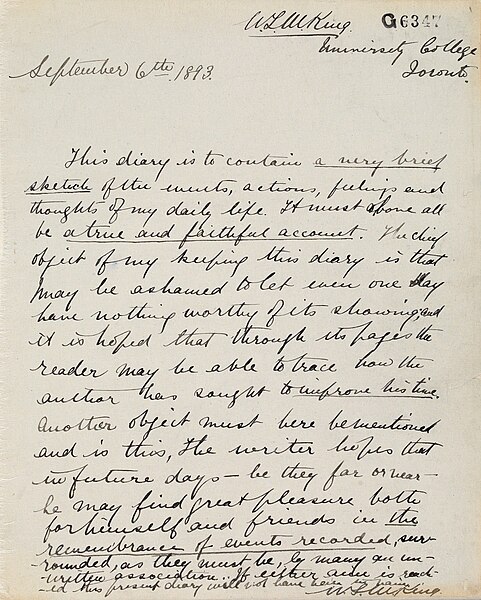 W.L.M.King. G6347
University College
Toronto.
September 6th. 1893.
This diary is to contain a very brief
sketch of the events, actions, feelings and
thoughts of my daily life. It must above all
be a true and faithful account. The chief
object of my keeping this diary is that
I may be ashamed to let even one day
have nothing worthy of its showing, and
it is hoped that through its pages the
reader may be able to trace how the
author has sought to improve his time.
Another object must here be mentioned
and is this, The writer hopes that
in future days — be they far or near —
he may find great pleasure both
for himself and friends in the
remembrance of events recorded, surr-
rounded, as they must be, by many an un-
written association. If either aim is reach-
ed this present diary will not have been in vain.
W.L.M.King.